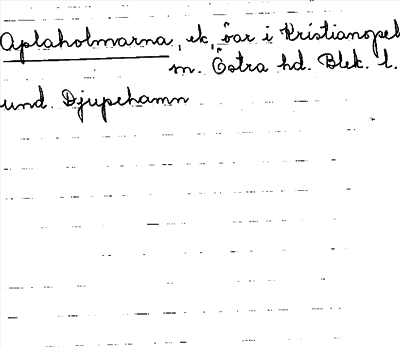 Aplaholmarna, ek, öar i Kristianopel
m. Östra hd. Blek. l.
und. Djupehamn